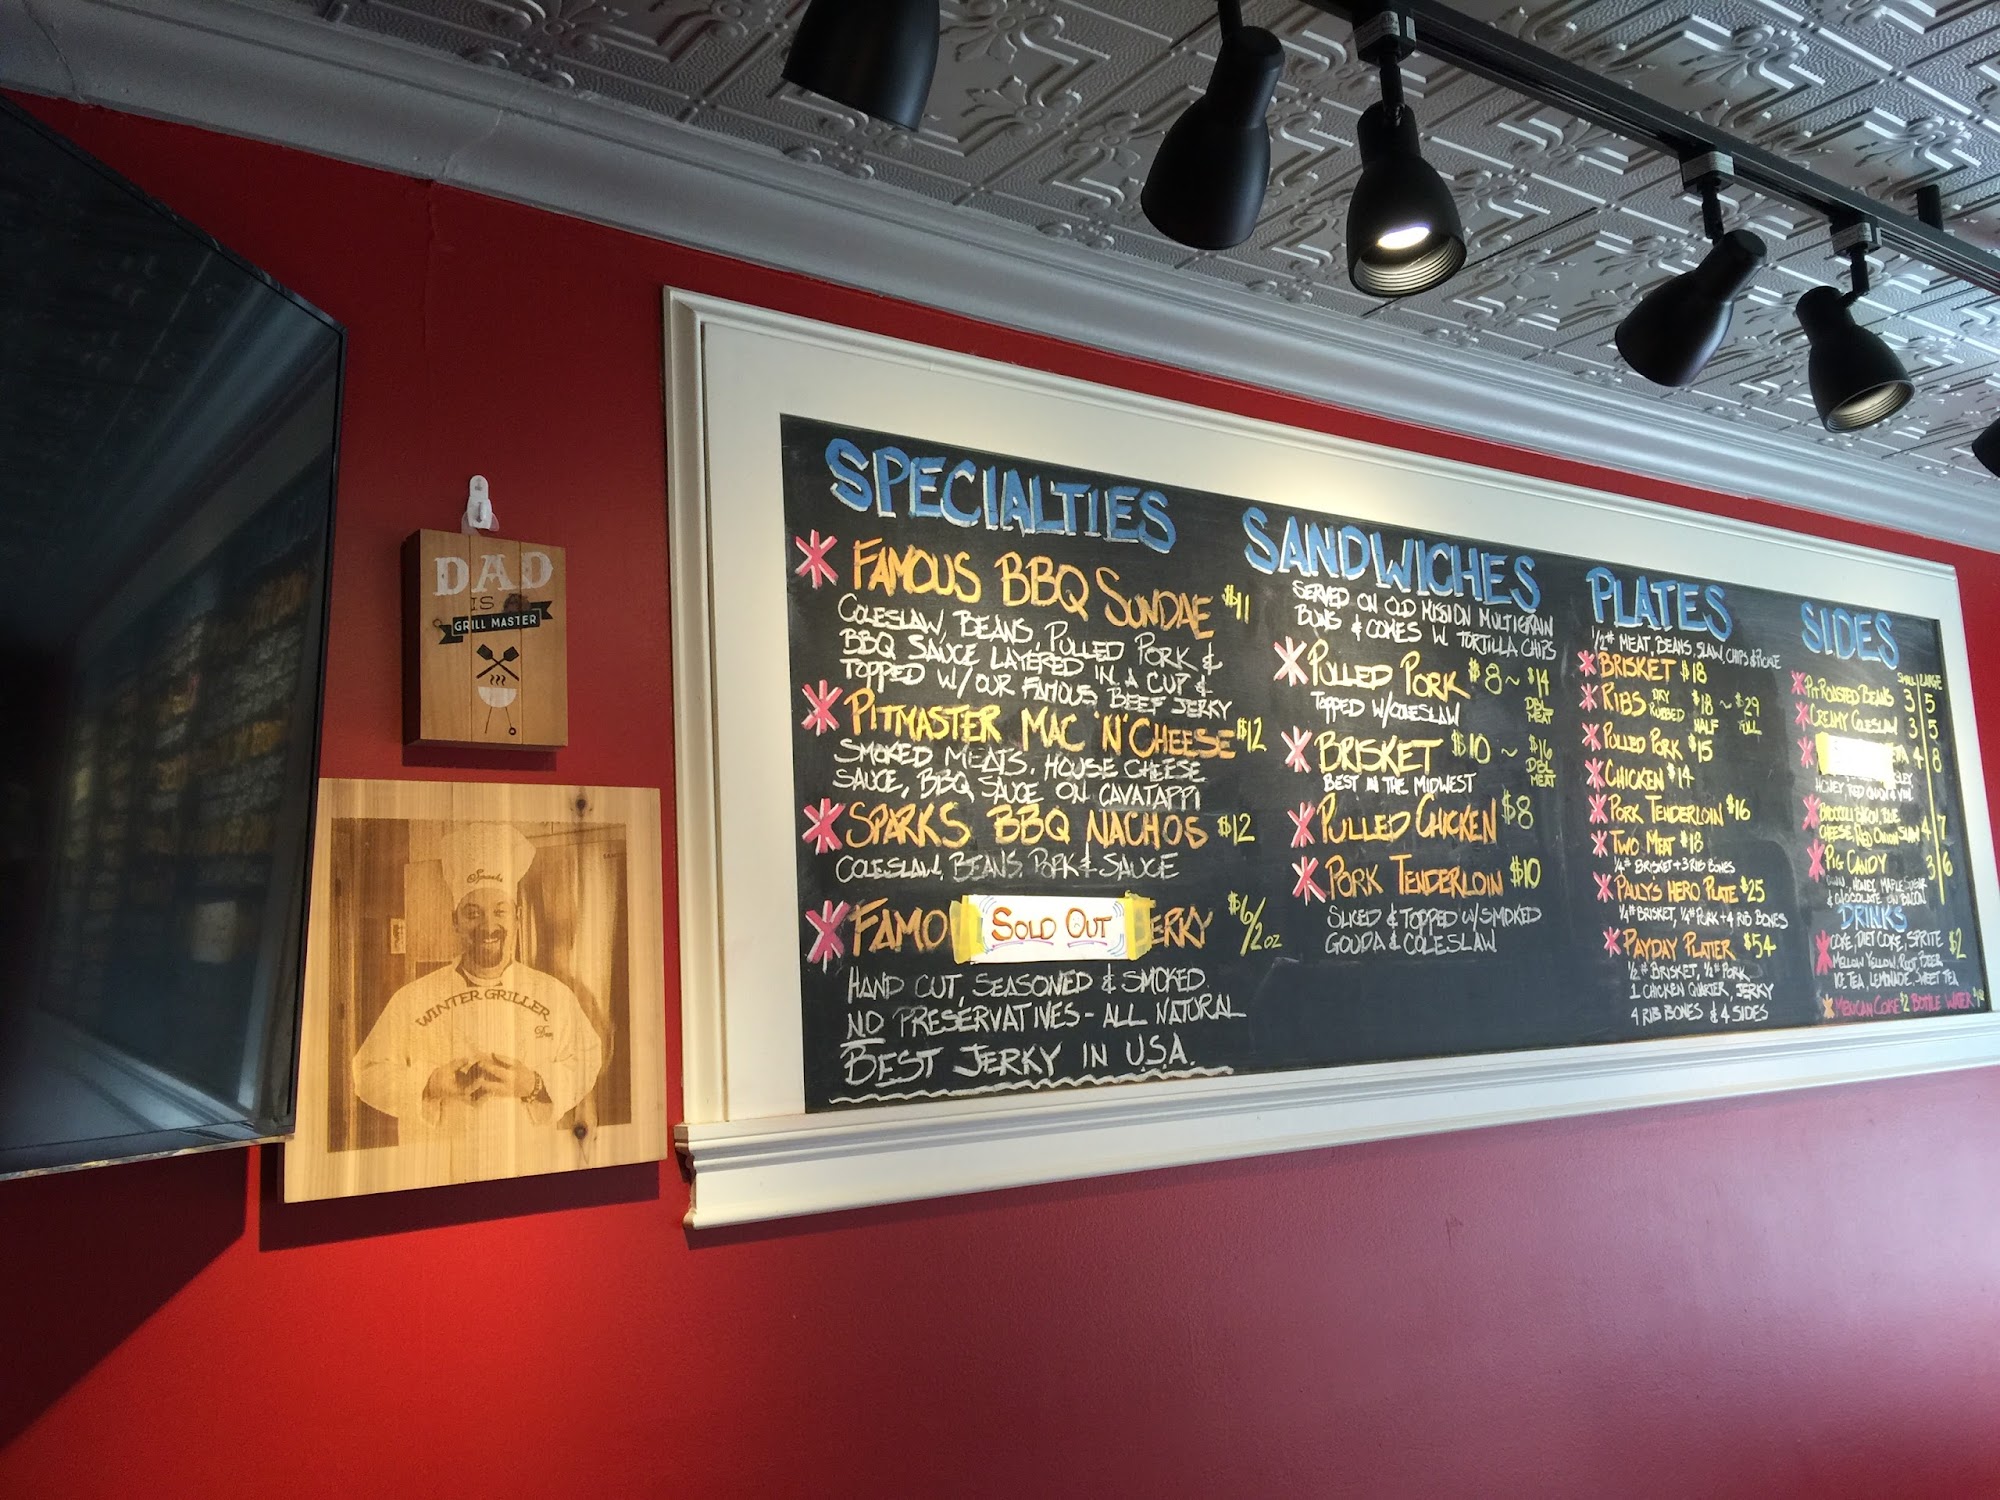 DAD
IS
GRILL MASTER
Sparks
WINTER GRILLER
SPECIALTIES
FAMOUS BBQ SUNDAE $11
COLESLAW, BEANS, PULLED PORK &
BBQ SAUCE LAYERED IN A CUP &
TOPPED W/ OUR FAMOUS BEEF JERKY
PITMASTER MAC 'N' CHEESE $12
SMOKED MEATS, HOUSE CHEESE
SAUCE, BBQ SAUCE ON CAVATAPPI
SPARKS BBQ NACHOS $12
COLESLAW, BEANS, PORK & SAUCE
FAMO SOLD OUT JERKY $6/2oz
HAND CUT, SEASONED & SMOKED.
NO PRESERVATIVES - ALL NATURAL
BEST JERKY IN U.S.A.
SANDWICHES
SERVED ON OLD MISSION MULTIGRAIN
BUNS & COMES W. TORTILLA CHIPS
PULLED PORK $8 ~ $14
TOPPED W/COLESLAW DBL MEAT
BRISKET $10 ~ $16
BEST IN THE MIDWEST DBL MEAT
PULLED CHICKEN $8
PORK TENDERLOIN $10
SLICED & TOPPED W/SMOKED
GOUDA & COLESLAW
PLATES
1/2# MEAT, BEANS, SLAW, CHIPS & PICKLE
BRISKET $18
RIBS DRY RUBBED $18 HALF ~ $29 FULL
PULLED PORK $15
CHICKEN $14
PORK TENDERLOIN $16
TWO MEAT $18
1/4# BRISKET + 3 RIB BONES
PAULY'S HERO PLATE $25
1/4# BRISKET, 1/4# PORK + 4 RIB BONES
PAYDAY PLATTER $54
1/2# BRISKET, 1/2# PORK
1 CHICKEN QUARTER, JERKY
4 RIB BONES & 4 SIDES
SIDES
SMALL | LARGE
PIT ROASTED BEANS 3 | 5
CREAMY COLESLAW 3 | 5
4 | 8
HONEY, RED ONION & VIN.
BROCCOLI, BACON, BLUE
CHEESE, RED ONION SLAW 4 | 7
PIG CANDY 3 | 6
HONEY, MAPLE SUGAR
& CHOCOLATE ON BACON
DRINKS
COKE, DIET COKE, SPRITE $2
MELLOW YELLOW, ROOT BEER
ICE TEA, LEMONADE, SWEET TEA
MEXICAN COKE $2 BOTTLE WATER